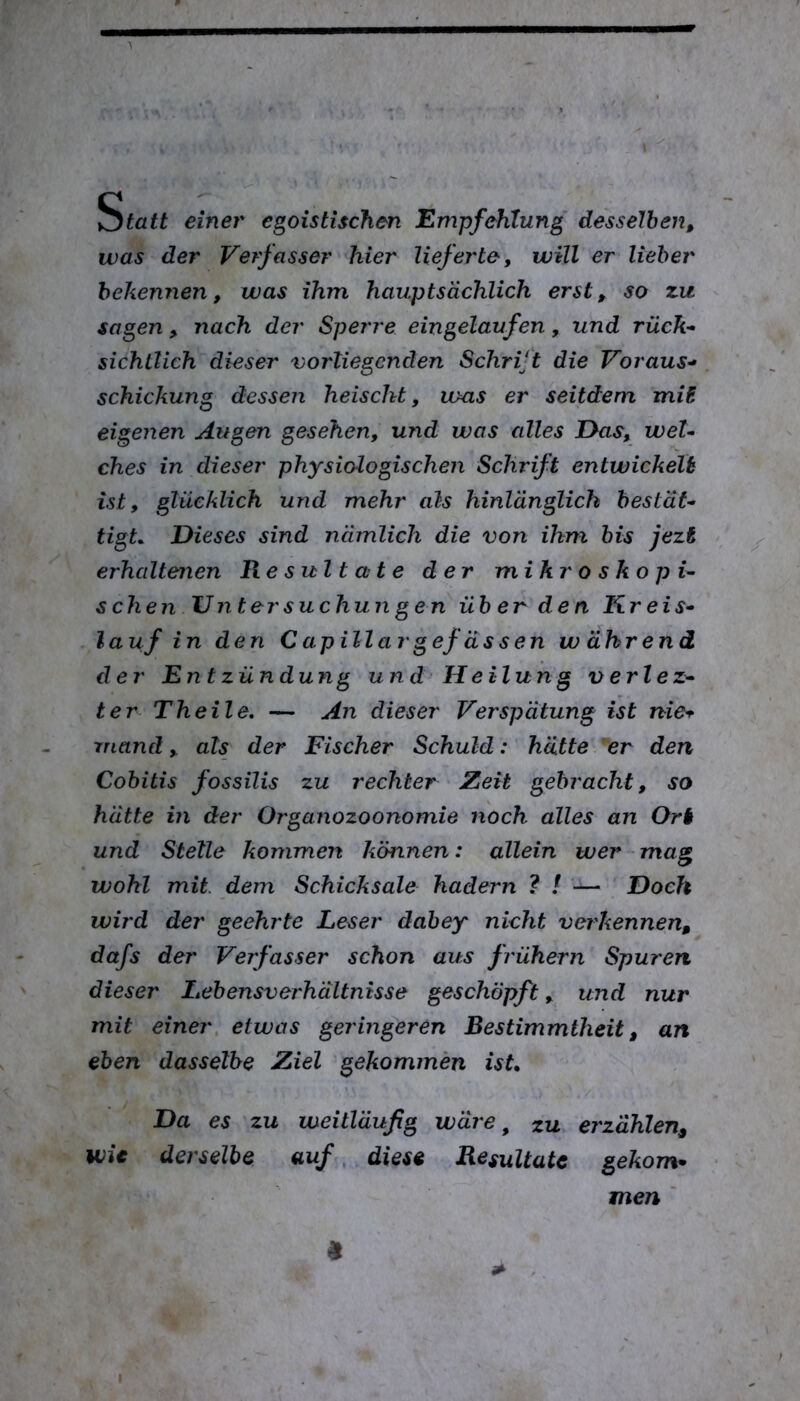 Statt einer egoistischen Empfehlung desselben,
was der Verfasser hier lieferte, will er lieber
bekennen, was ihm hauptsächlich erst, so zu
sagen, nach der Sperre eingelaufen, und rück-
sichtlich dieser vorliegenden Schrift die Voraus-
schickung dessen heischt, was er seitdem mit
eigenen Augen gesehen, und was alles Das, wel-
ches in dieser physiologischen Schrift entwickelt
ist, glücklich und mehr als hinlänglich bestät-
tigt. Dieses sind nämlich die von ihm bis jezt
erhaltenen Resultate der mikroskopi-
schen Untersuchungen über den Kreis-
lauf in den Capillargefässen während
der Entzündung und Heilung verlez-
ter Theile. — An dieser Verspätung ist nie-
mand, als der Fischer Schuld: hätte er den
Cobitis fossilis zu rechter Zeit gebracht, so
hätte in der Organozoonomie noch alles an Ort
und Stelle kommen können: allein wer mag
wohl mit dem Schicksale hadern ? ! — Doch
wird der geehrte Leser dabey nicht verkennen,
daſs der Verfasser schon aus frühern Spuren
dieser Lebensverhältnisse geschöpft, und nur
mit einer etwas geringeren Bestimmtheit, an
eben dasselbe Ziel gekommen ist.
Da es zu weitläufig wäre, zu erzählen,
wie derselbe auf diese Resultate gekom-
men